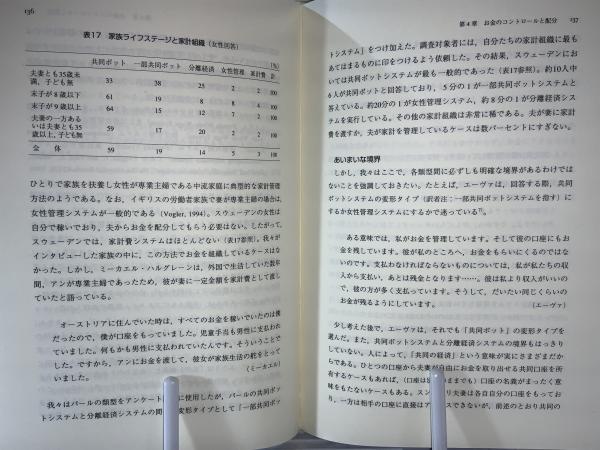 136
表17　家族ライフステージと家計組織（女性回答）
(%)
共同ポット　一部共同ポット　分離経済　女性管理　家計費　計
夫妻とも35歳未
満，子ども無　33　38　25　2　2　100
末子が8歳以下　61　19　8　8　4　100
末子が9歳以上　64　15　12　7　2　100
夫妻の一方ある
いは夫妻とも35　59　17　20　2　2　100
歳以上，子ども無
全　体　59　19　14　5　3　100
ひとりで家族を扶養し女性が専業主婦である中流家庭に典型的な家計管理
方法のようである。なお，イギリスの労働者家族で妻が専業主婦の場合は，
女性管理システムが一般的である（Vogler, 1994）。スウェーデンの女性は
自分で稼いでおり，夫からお金を配分してもらう必要はない。したがって，
スウェーデンでは，家計費システムはほとんどない（表17参照）。我々が
インタビューした家族の中に，この方法でお金を組織しているケースはな
かった。しかし，ミーカエル・ハルグレーンは，外国で生活していた数年
間，アンが専業主婦であったため，彼が妻に一定金額を家計費として渡し
ていたと語っている。
オーストリアに住んでいた時は，すべてのお金を稼いでいたのは僕
だったので，僕が口座をもっていました。児童手当も男性に支払われ
ていました。何もかも男性に支払われていたんです。そういうことで
した。ですから，アンにお金を渡して，彼女が家族生活の舵をとって
いました。
（ミーカエル）
我々はパールの類型をアンケート
に使用したが，パールの共同ポッ
トシステムと分離経済システムの間
変形タイプとして「一部共同ポッ
第4章　お金のコントロールと配分　137
トシステム」をつけ加えた。調査対象者には，自分たちの家計組織に最も
あてはまるものに印をつけるよう依頼した。その結果，スウェーデンにお
いては共同ポットシステムが最も一般的であった（表17参照）。約10人中
6人が共同ポットと回答しており，5分の1が一部共同ポットシステムと
答えている。約20分の1が女性管理システム，約8分の1が分離経済シス
テムを実行している。その他の家計組織は非常に稀である。夫が妻に家計
費を渡すか，夫が家計を管理しているケースは数パーセントにすぎない。
あいまいな境界
しかし，我々はここで，各類型間に必ずしも明確な境界があるわけでは
ないことを強調しておきたい。たとえば，エーヴァは，回答する際，共同
ポットシステムの変形タイプ（訳者注：一部共同ポットシステムを指す）に
するか女性管理システムにするかで迷っている7)。
ある意味では，私がお金を管理しています。そして彼の口座にもお
金を残しています。彼が私のところへ，お金をもらいにくるのではな
いのです。支払わなければならないものについては，私が私たちの収
入から支払い，あとは残金となります……。彼は私より収入がいいの
で，彼の方が多く支払っています。そうして，だいたい同じくらいの
お金が残るようにしています。
（エーヴァ）
少し考えた後で，エーヴァは，それでも「共同ポット」の変形タイプを
選んだ。また，共同ポットシステムと分離経済システムの境界もはっきり
していない。人によって，「共同の経済」という意味が実にさまざまだか
らである。ひとつの口座から夫妻が自由にお金を取り出せる共同口座を所
有するケースもあれば，
口座の名義がまったく意
味をもたないケースもある。
夫妻は各自自分の口座をもってお
り，一方は相手の口座に直接は
できないが，前述のとおり共同の